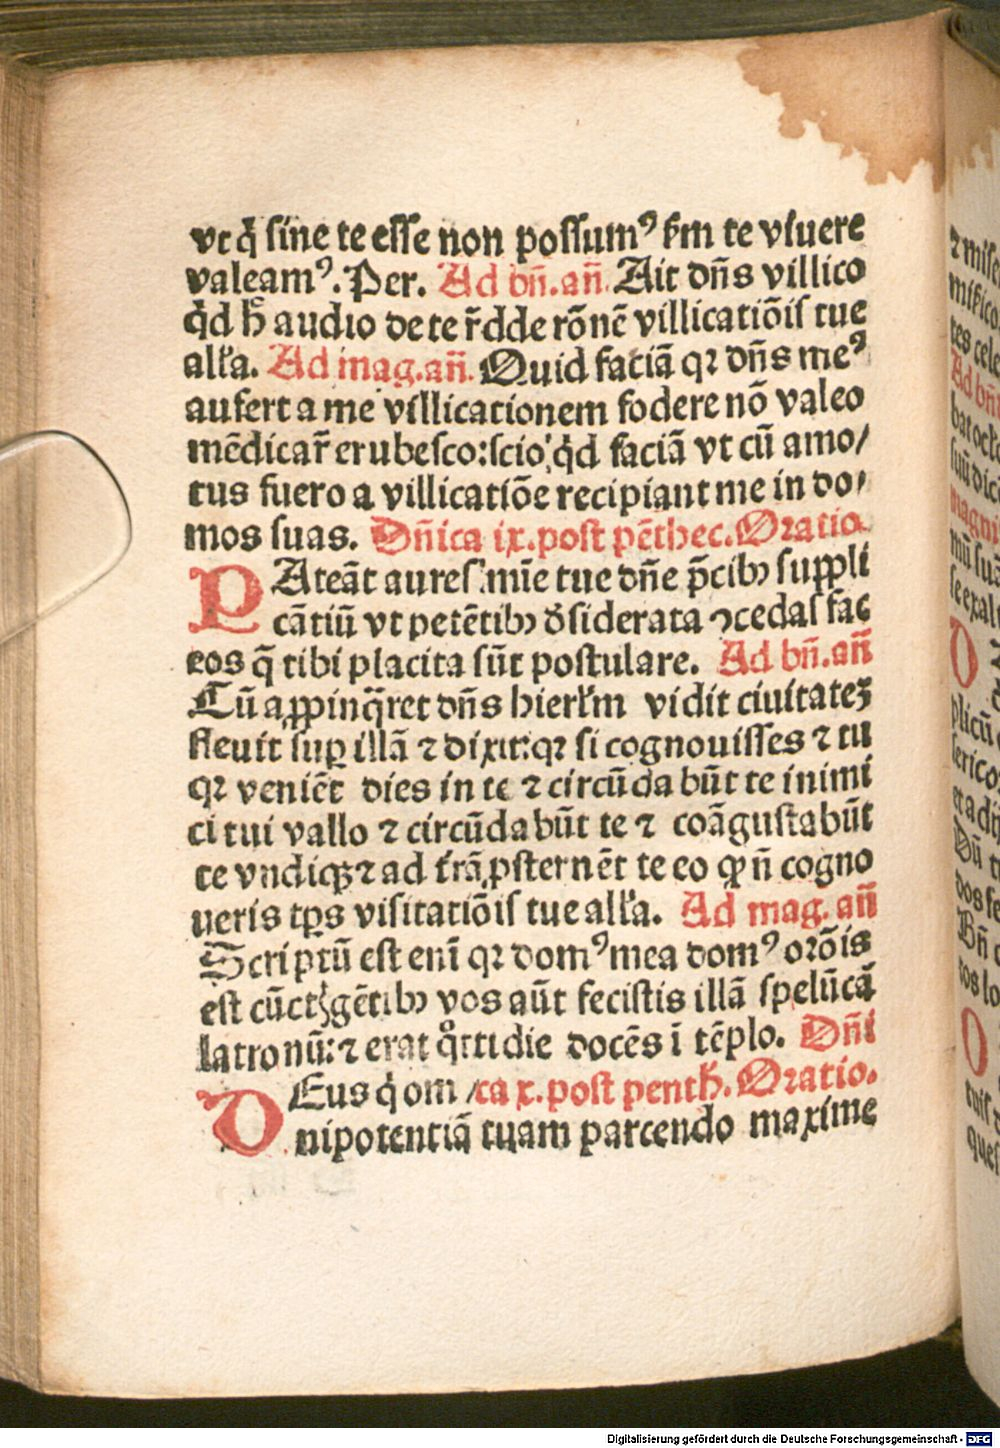 vt q̇ sine te esse non possumꝰ ẜm te viuere
valeamꝰ. Per. Ad bn̄.an̄. Ait dn̄s villico
q̇d h̄ audio de te r̄dde rōnē villicatiōis tue
all'a. Ad mag.an̄. Quid faciā qꝛ dn̄s meꝰ
aufert a me villicationem fodere nō valeo
mēdicar̄ erubesco:scio q̇d faciā vt cū amo/
tus fuero a villicatiōe recipiant me in do/
mos suas. Dn̄ica ix.post pēthec.Oratio.
PAteāt aures mīe tue dn̄e p̄cibꝫ suppli
cātiū vt petētibꝫ d̄siderata ꝯcedas fac
eos q̄ tibi placita sūt postulare. Ad bn̄.an̄
Cū aꝓpinq̄ret dn̄s hierl'm vidit ciuitatēꝫ
fleuit suꝑ illā ⁊ dixit:qꝛ si cognouisses ⁊ tu
qꝛ veniēt dies in te ⁊ circūdabūt te inimi
ci tui vallo ⁊ circūdabūt te ⁊ coāgustabūt
te vndiqꝫ ⁊ ad t'rā ꝓsternēt te eo ꝙ n̄ cogno
ueris tꝑs visitatiōis tue all'a. Ad mag. an̄
Scriptū est enī qꝛ domꝰ mea domꝰ orōis
est cūctꝭ gētibꝫ vos aūt fecistis illā spelūcā
latronū: ⁊ erat q°ttidie docēs ī tēplo. Dn̄i
DEus q̇ om /ca x.post penth̄.Oratio.
nipotentiā tuam parcendo maxime
⁊ mise
tes cele
Ad bn̄
bat octo
suū dic
magni
mū suū
se exal
D
plicū
serico
et adip
Dū t
dos fe
Bn̄
tos lo
D
tuis
ques
Digitalisierung gefördert durch die Deutsche Forschungsgemeinschaft - DFG